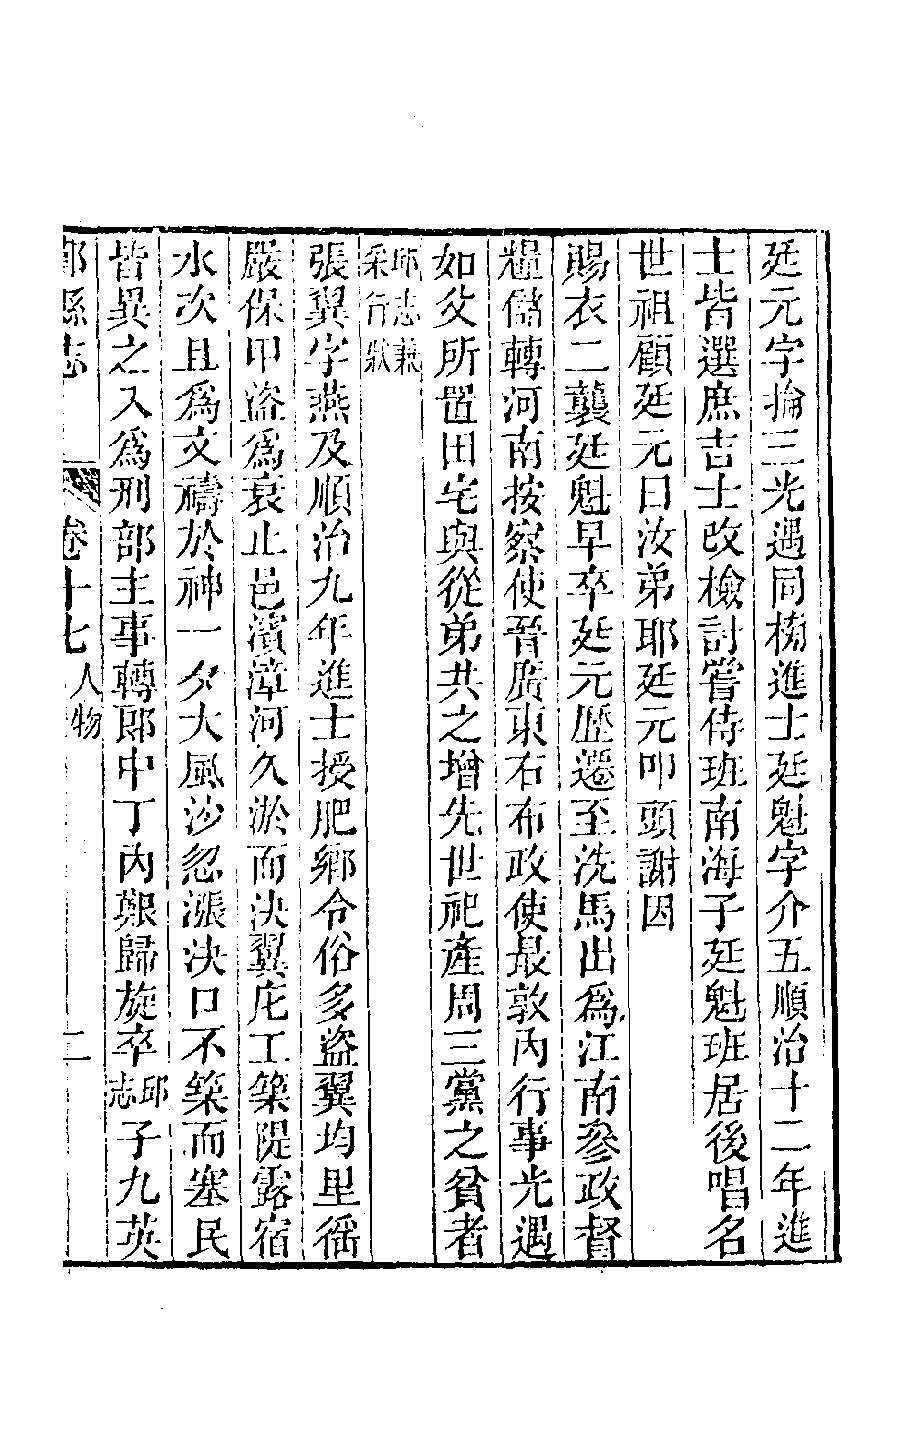 廷元字掄三光遇同榜進士廷魁字介五順治十二年進
士皆選庶吉士改檢討嘗侍班南海子廷魁班居後唱名
世祖顧廷元曰汝弟耶廷元叩頭謝因
賜衣二襲廷魁早卒廷元歷遷至洗馬出爲江南參政督
糧儲轉河南按察使晉廣東右布政使最敦內行事光遇
如父所置田宅與從弟共之增先世祀產周三黨之貧者
邱志兼
采行狀
張翼字燕及順治九年進士授肥鄉令俗多盜翼均里徭
嚴保甲盜爲衰止邑濱漳河久淤而決翼庀工築隄露宿
水次且爲文禱於神一夕大風沙忽漲決口不築而塞民
皆異之入爲刑部主事轉郎中丁內艱歸旋卒邱志子九英
縣志 卷十七 人物 二